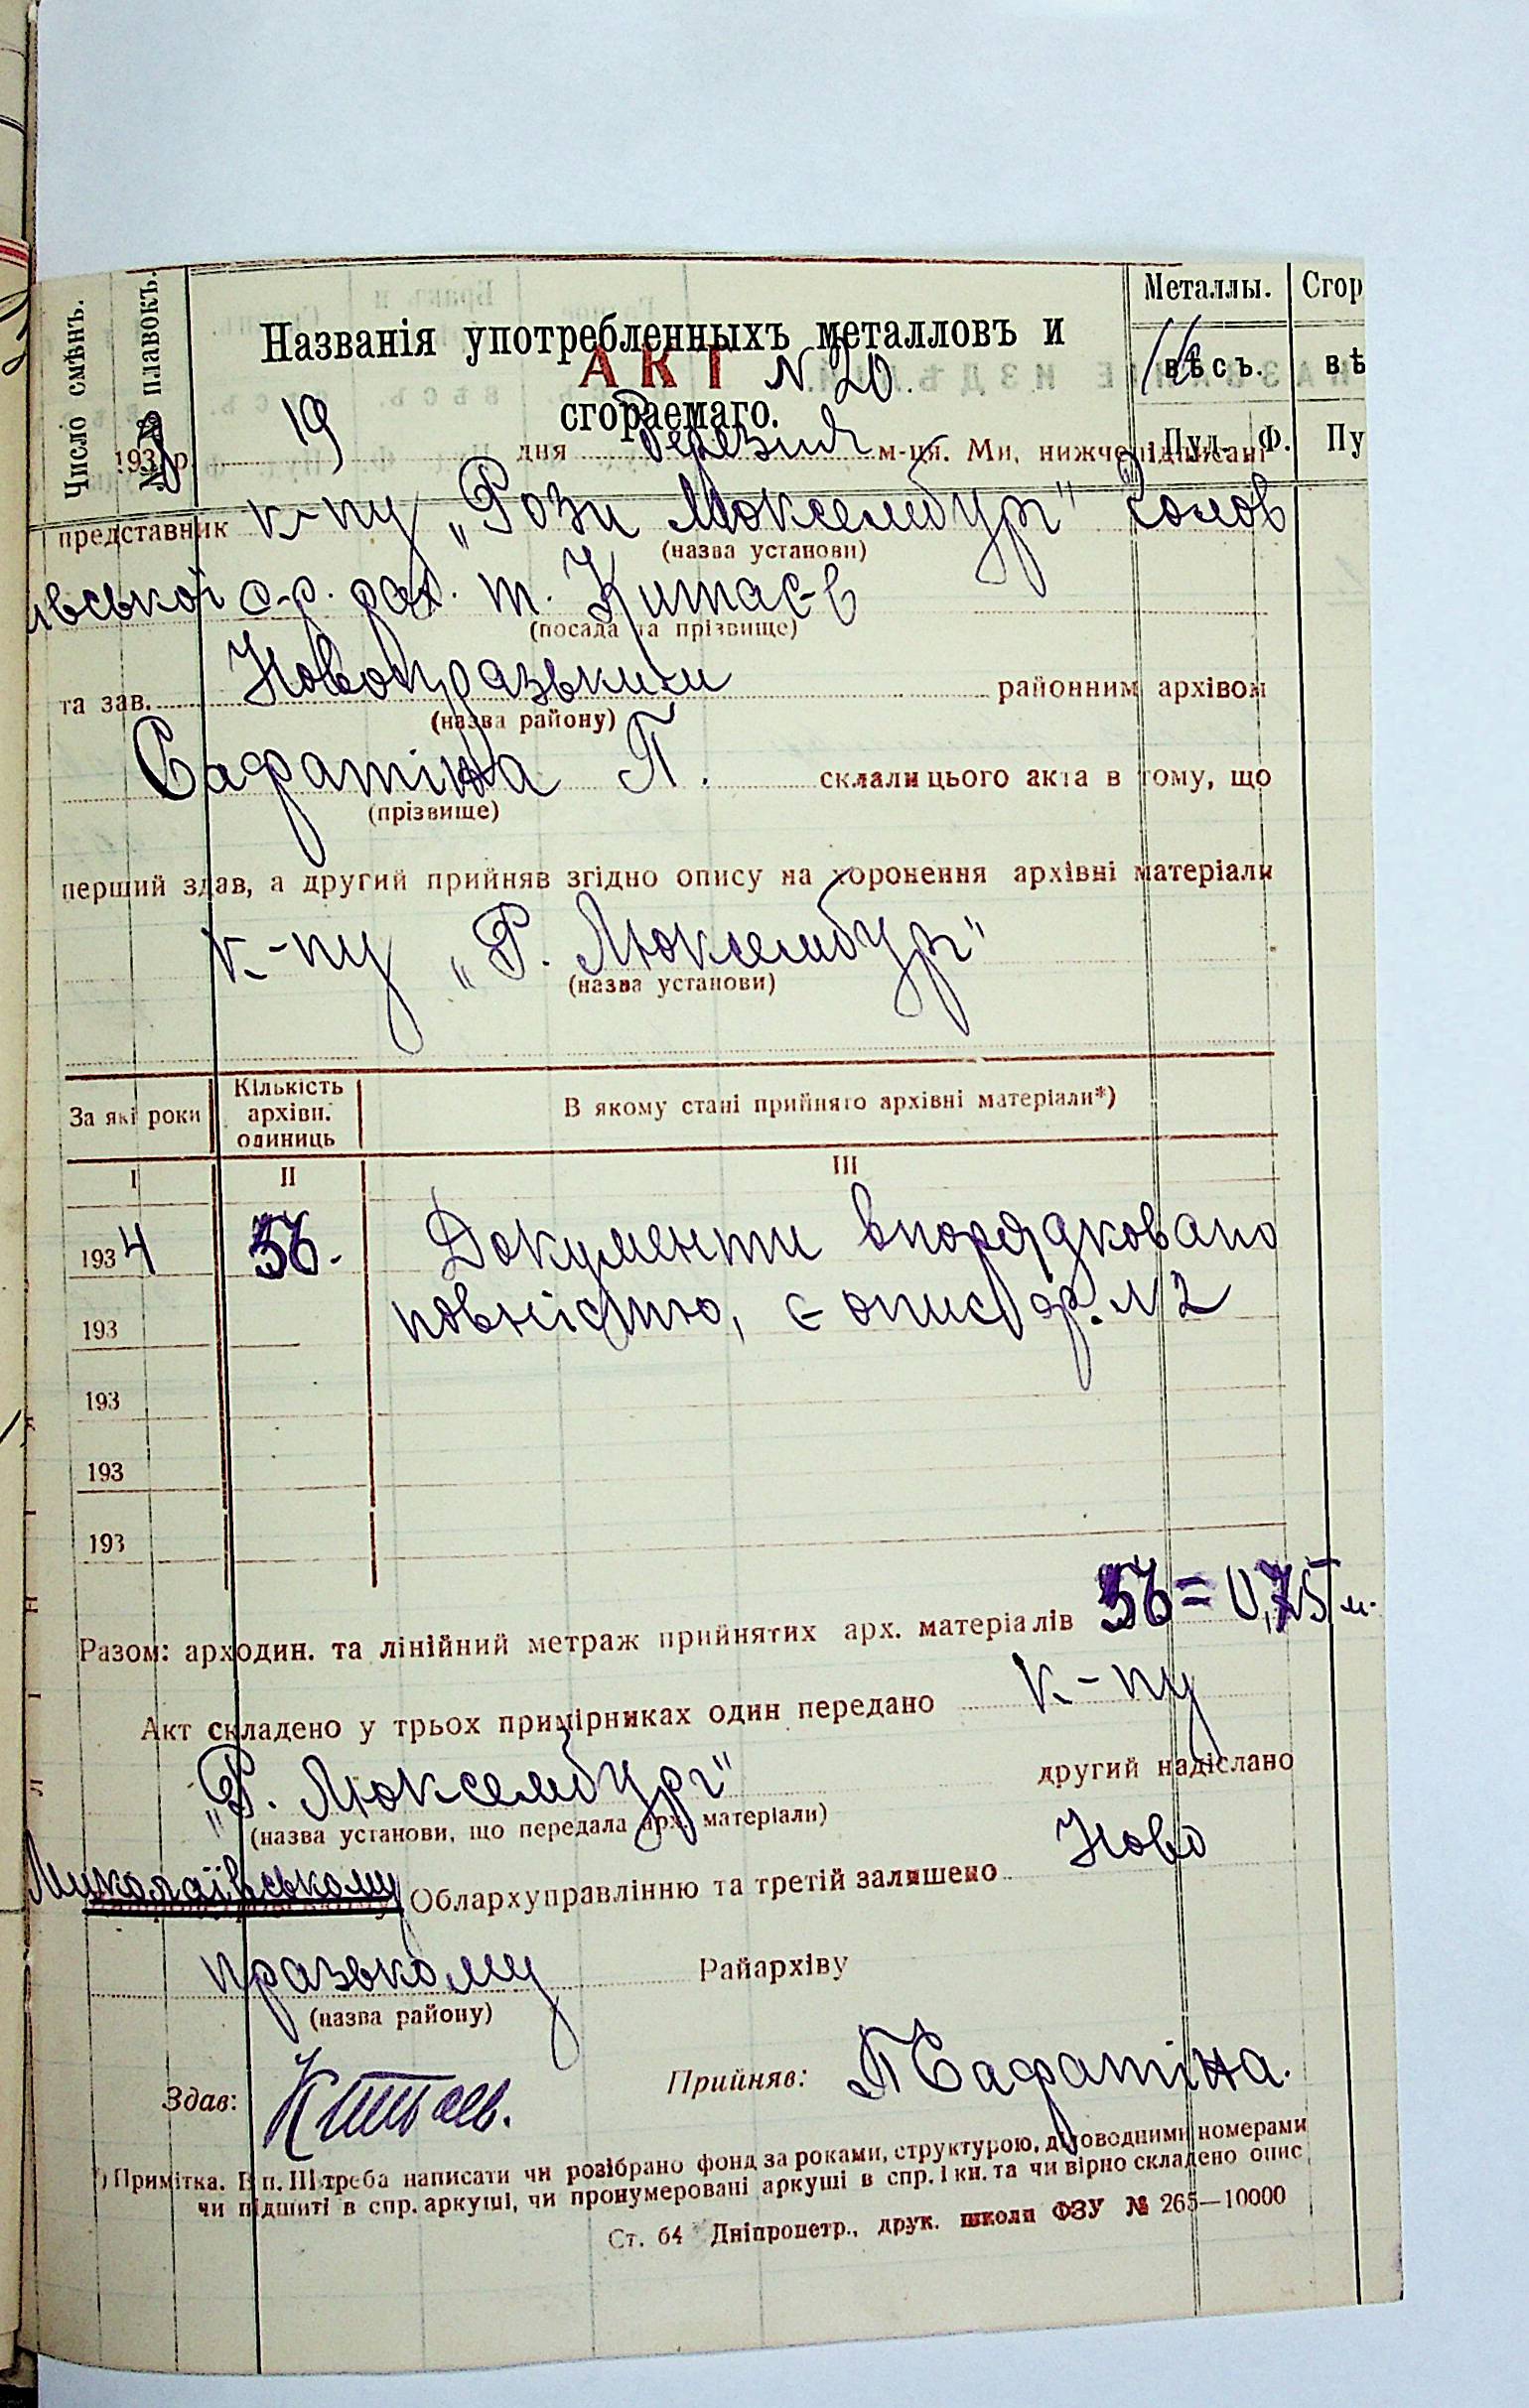 Число смѣнъ.
№ плавокъ.
Названія употребленныхъ металловъ и
сгораемаго.
Металлы.
Сгор
вѣсъ.
вѣ
Пуд. Ф.
Пу
АКТ N 20.
193 р. 19 дня березня м-ця. Ми, нижчепідписані
представник к-пу „Рози Люксембург" Солов
ївської с-р. рах. т. Китаєв
(назва установи)
(посада та прізвище)
та зав. Новопразьким районним архівом
(назва району)
Сафатіна П. склали цього акта в тому, що
(прізвище)
перший здав, а другий прийняв згідно опису на хоронення архівні матеріали
к-пу „Р. Люксембург"
(назва установи)
За які роки
Кількість архівн. одиниць
В якому стані прийнято архівні матеріали*)
I II III
1934 56. Документи впорядковано
193 повністю, є опис ф. № 2
193
193
193
Разом: арходин. та лінійний метраж прийнятих арх. матеріалів 56 = 0,75 м.
Акт складено у трьох примірниках один передано к-пу
„Р. Люксембург" другий надіслано
(назва установи, що передала арх. матеріали)
Миколаївському Облархуправлінню та третій залишено Ново
празькому Райархіву
(назва району)
Здав: Китаев. Прийняв: ПСафатіна.
*) Примітка. В п. III треба написати чи розібрано фонд за роками, структурою, діловодними номерами
чи підшиті в спр. аркуші, чи пронумеровані аркуші в спр. і кн. та чи вірно складено опис
Ст. 64 Дніпропетр., друк. школи ФЗУ № 265—10000